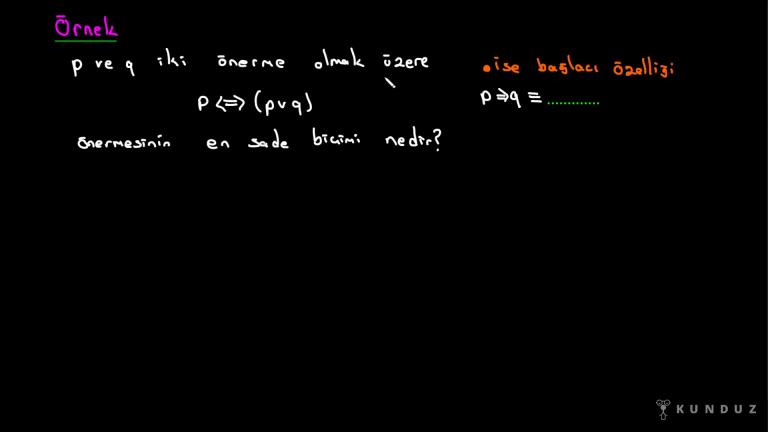 Örnek
p ve q iki önerme olmak üzere
p <=> (p v q)
önermesinin en sade biçimi nedir?
• ise bağlacı özelliği
p ⇒ q ≡ .............
KUNDUZ